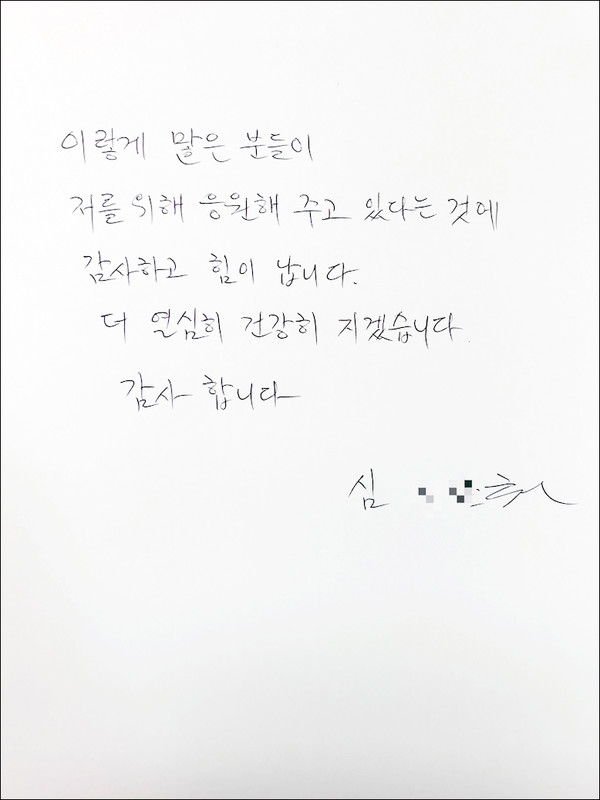 이렇게 많은 분들이
저를 위해 응원해 주고 있다는 것에
감사하고 힘이 납니다.
더 열심히 건강히 지겠습니다.
감사 합니다
심